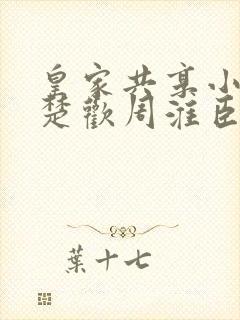 皇家共享小
楚歡周淮臣
葉十七